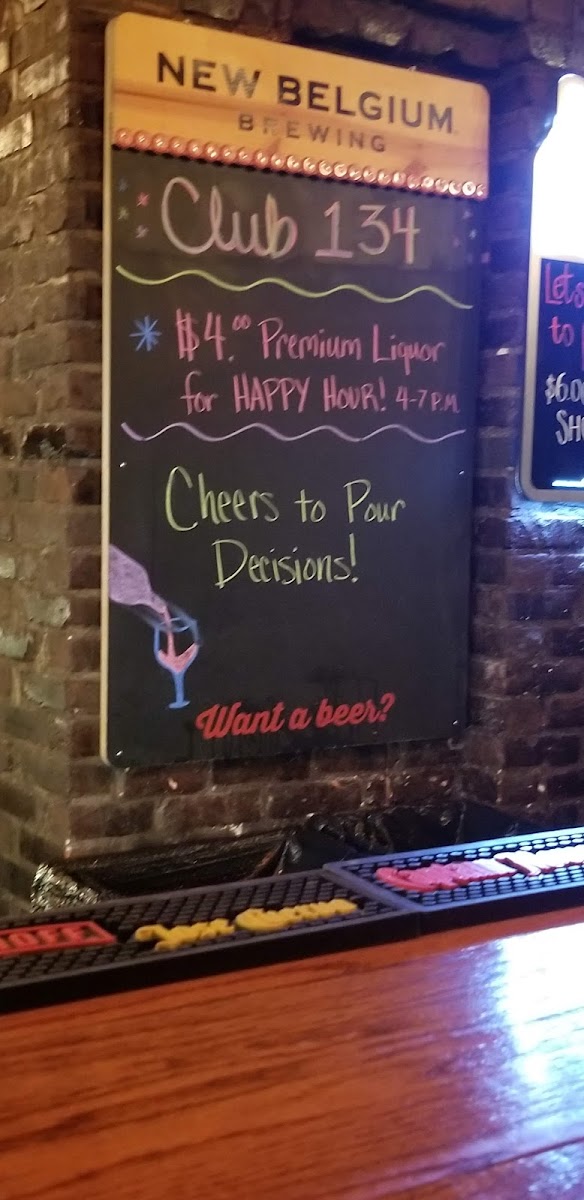 NEW BELGIUM
BREWING
Club 134
$4.00 Premium Liquor
for HAPPY HOUR! 4-7 P.M.
Cheers to Pour
Decisions!
Want a beer?
Lets
to
$6.00
Jose Cuervo